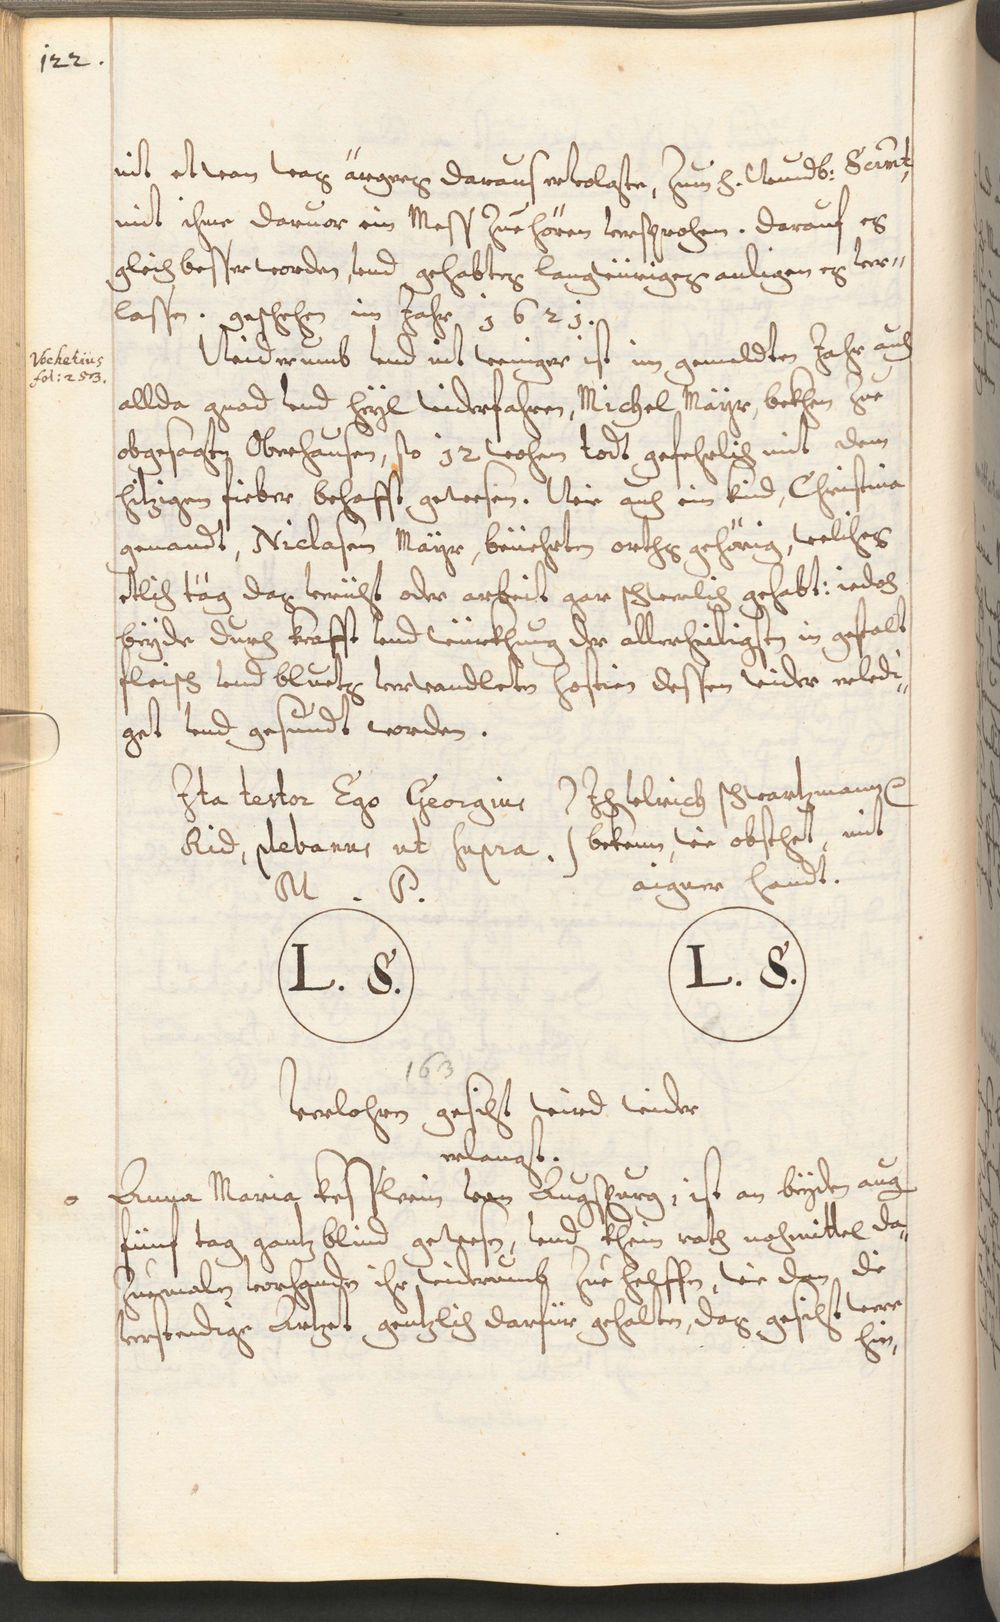 122.
nit etwan was ärgers daraus ervolgte, Zum h. Wundb: Sacrmt,
mit ihme daruor ein Mess Zue hören versprochen. darauf es
gleich besser worden, vnd gehabtes langwüriges anligen es ver„
lassen. geschehen im Jahr 1621.
Vochetius
fol: 253.
Widerumb vnd nit weniger ist im gemeldten Jahr auch
allda gnad vnd heyl widerfahren, Michel Mäyr, bekhen Zue
obgesagten Oberhausen, so 12 wochen todt gefehrlich mit dem
hitzigen fieber behafft gewesen. Wie auch ein kind, Christina
genandt, Niclasen Mäyr, berüehrten orths gehörig, weliches
etlich täg das vergicht oder arbeit gar schwerlich gehabt: iedoch
beyde durch krafft vnd würkhung der allerheiligsten in gestalt
fleisch vnd bluets verwandleten hostien dessen wider erledi„
get vnd gesundt worden.
Ita testor Ego Georgius
Rid, plebanus ut supra.
M. P.
Ich Vlrich schwartzmann
bekenn, wie obstehet, mit
aigner handt.
L. S.
L. S.
163
Verlohren gesicht wird wider
erlangt.
Anna Maria Kesslerin von Augspurg, ist an beyden aug
fünf tag gantz blind gewesen, vnd khein rath noch mittel da„
Zuemalen vorhanden ihr widerumb Zue helffen, wie dan die
verstendige Artzet gentzlich darfür gehalten, das gesicht were
hin„